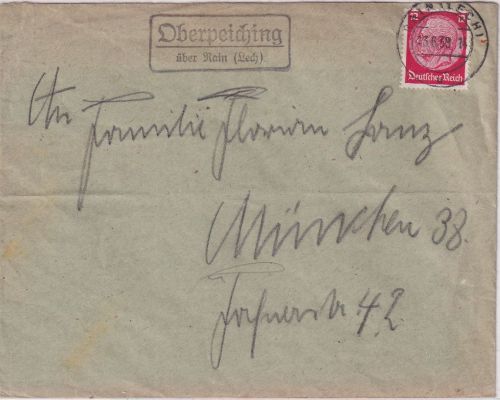 Oberpeiching
über Rain (Lech)
(LECH)
23.6.38
12
12
Deutsches Reich
An Familie Florian Lanz
München 38.
42